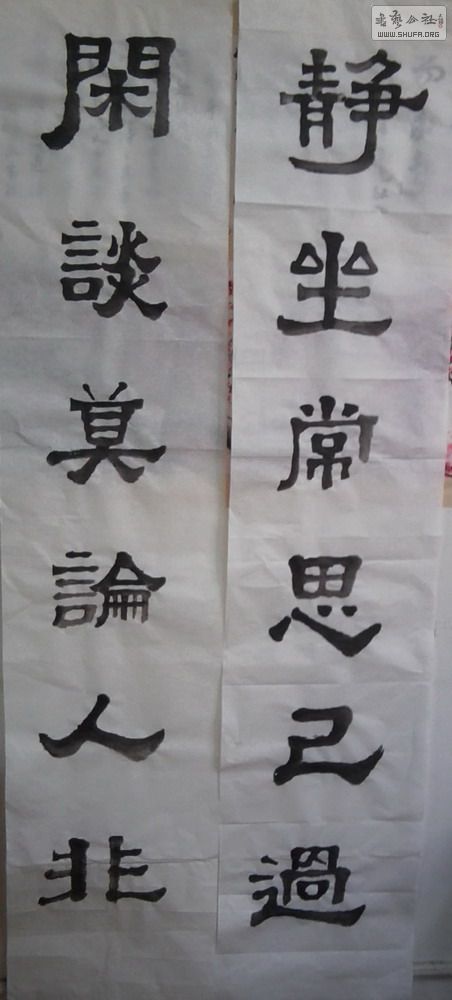 静坐常思己過
閑談莫論人非
書藝公社
WWW.SHUFA.ORG